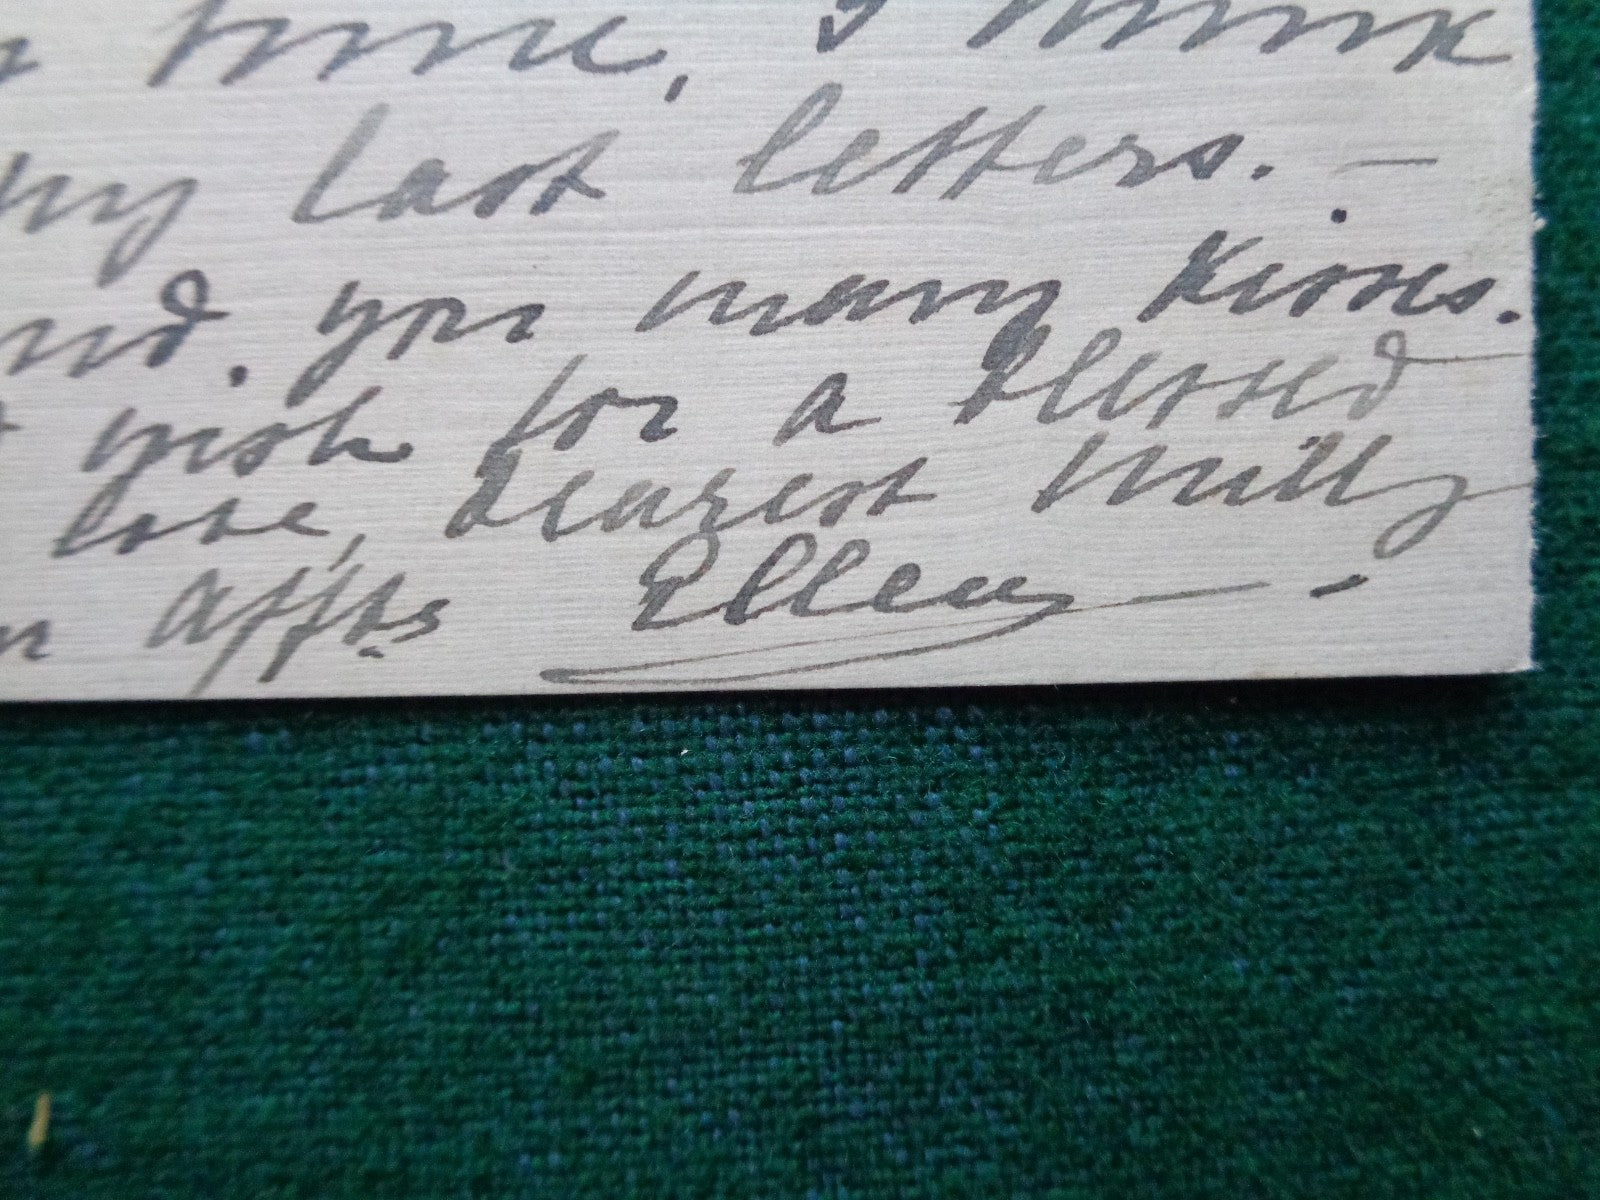 time, I think
my last letters. —
you many kisses.
wish for a blessed
love, dearest Milly
Affte Ellen